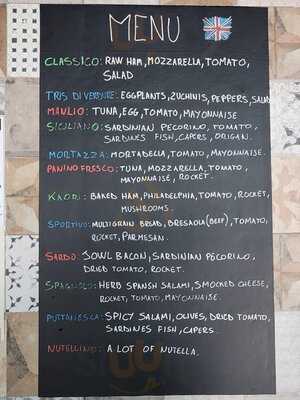 MENU
CLASSICO: RAW HAM, MOZZARELLA, TOMATO,
SALAD
TRIS DI VERDURE: EGGPLANTS, ZUCHINIS, PEPPERS, SALAD
MANLIO: TUNA, EGG, TOMATO, MAYONNAISE
SICILIANO: SARDINIAN PECORINO, TOMATO,
SARDINES FISH, CAPERS, ORIGAN.
MORTAZZA: MORTADELLA, TOMATO, MAYONNAISE.
PANINO FRESCO: TUNA, MOZZARELLA, TOMATO,
MAYONNAISE, ROCKET.
KAORI: BAKED HAM, PHILADELPHIA, TOMATO, ROCKET,
MUSHROOMS.
SPORTIVO: MULTIGRAIN BREAD, BRESAOLA (BEEF), TOMATO,
ROCKET, PARMESAN.
SARDO: SOWL BACON, SARDINIAN PECORINO,
DRIED TOMATO, ROCKET.
SPAGNOLO: HERB SPANISH SALAMI, SMOCKED CHEESE,
ROCKET, TOMATO, MAYONNAISE.
PUTTANESCA: SPICY SALAMI, OLIVES, DRIED TOMATO,
SARDINES FISH, CAPERS.
NUTELLINO: A LOT OF NUTELLA.